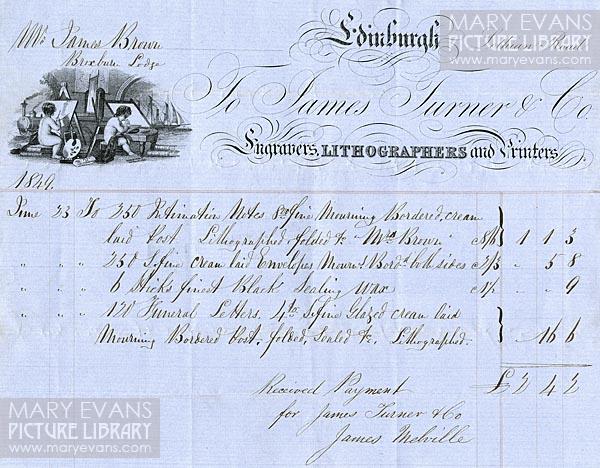 MARY EVANS
PICTURE LIBRARY
www.maryevans.com
Edinburgh, Road
Mr. James Brown
Broxburn Lodge
To James Turner & Co.
Engravers, LITHOGRAPHERS and Printers
1849.
June 23 To 250 Intimation Notes 8vo fine Mourning Bordered, cream } 
laid post Lithographed folded &c "Mrs Brown" 1 1 3
" " " 250 S.fine cream laid Envelopes Mourng Bordd both sides 2/3 " 5 8
" " " 6 Sticks finest Black Sealing Wax " " 9
" " " 120 Funeral Letters. 4to S.fine Glazed cream laid }
Mourning Bordered Post. folded, Sealed &c. Lithographed. " 16 6
£ 2 4 2
Received Payment
for James Turner & Co
James Melville
MARY EVANS
PICTURE LIBRARY
www.maryevans.com
MARY EVANS
PICTURE LIBRARY
www.maryevans.com